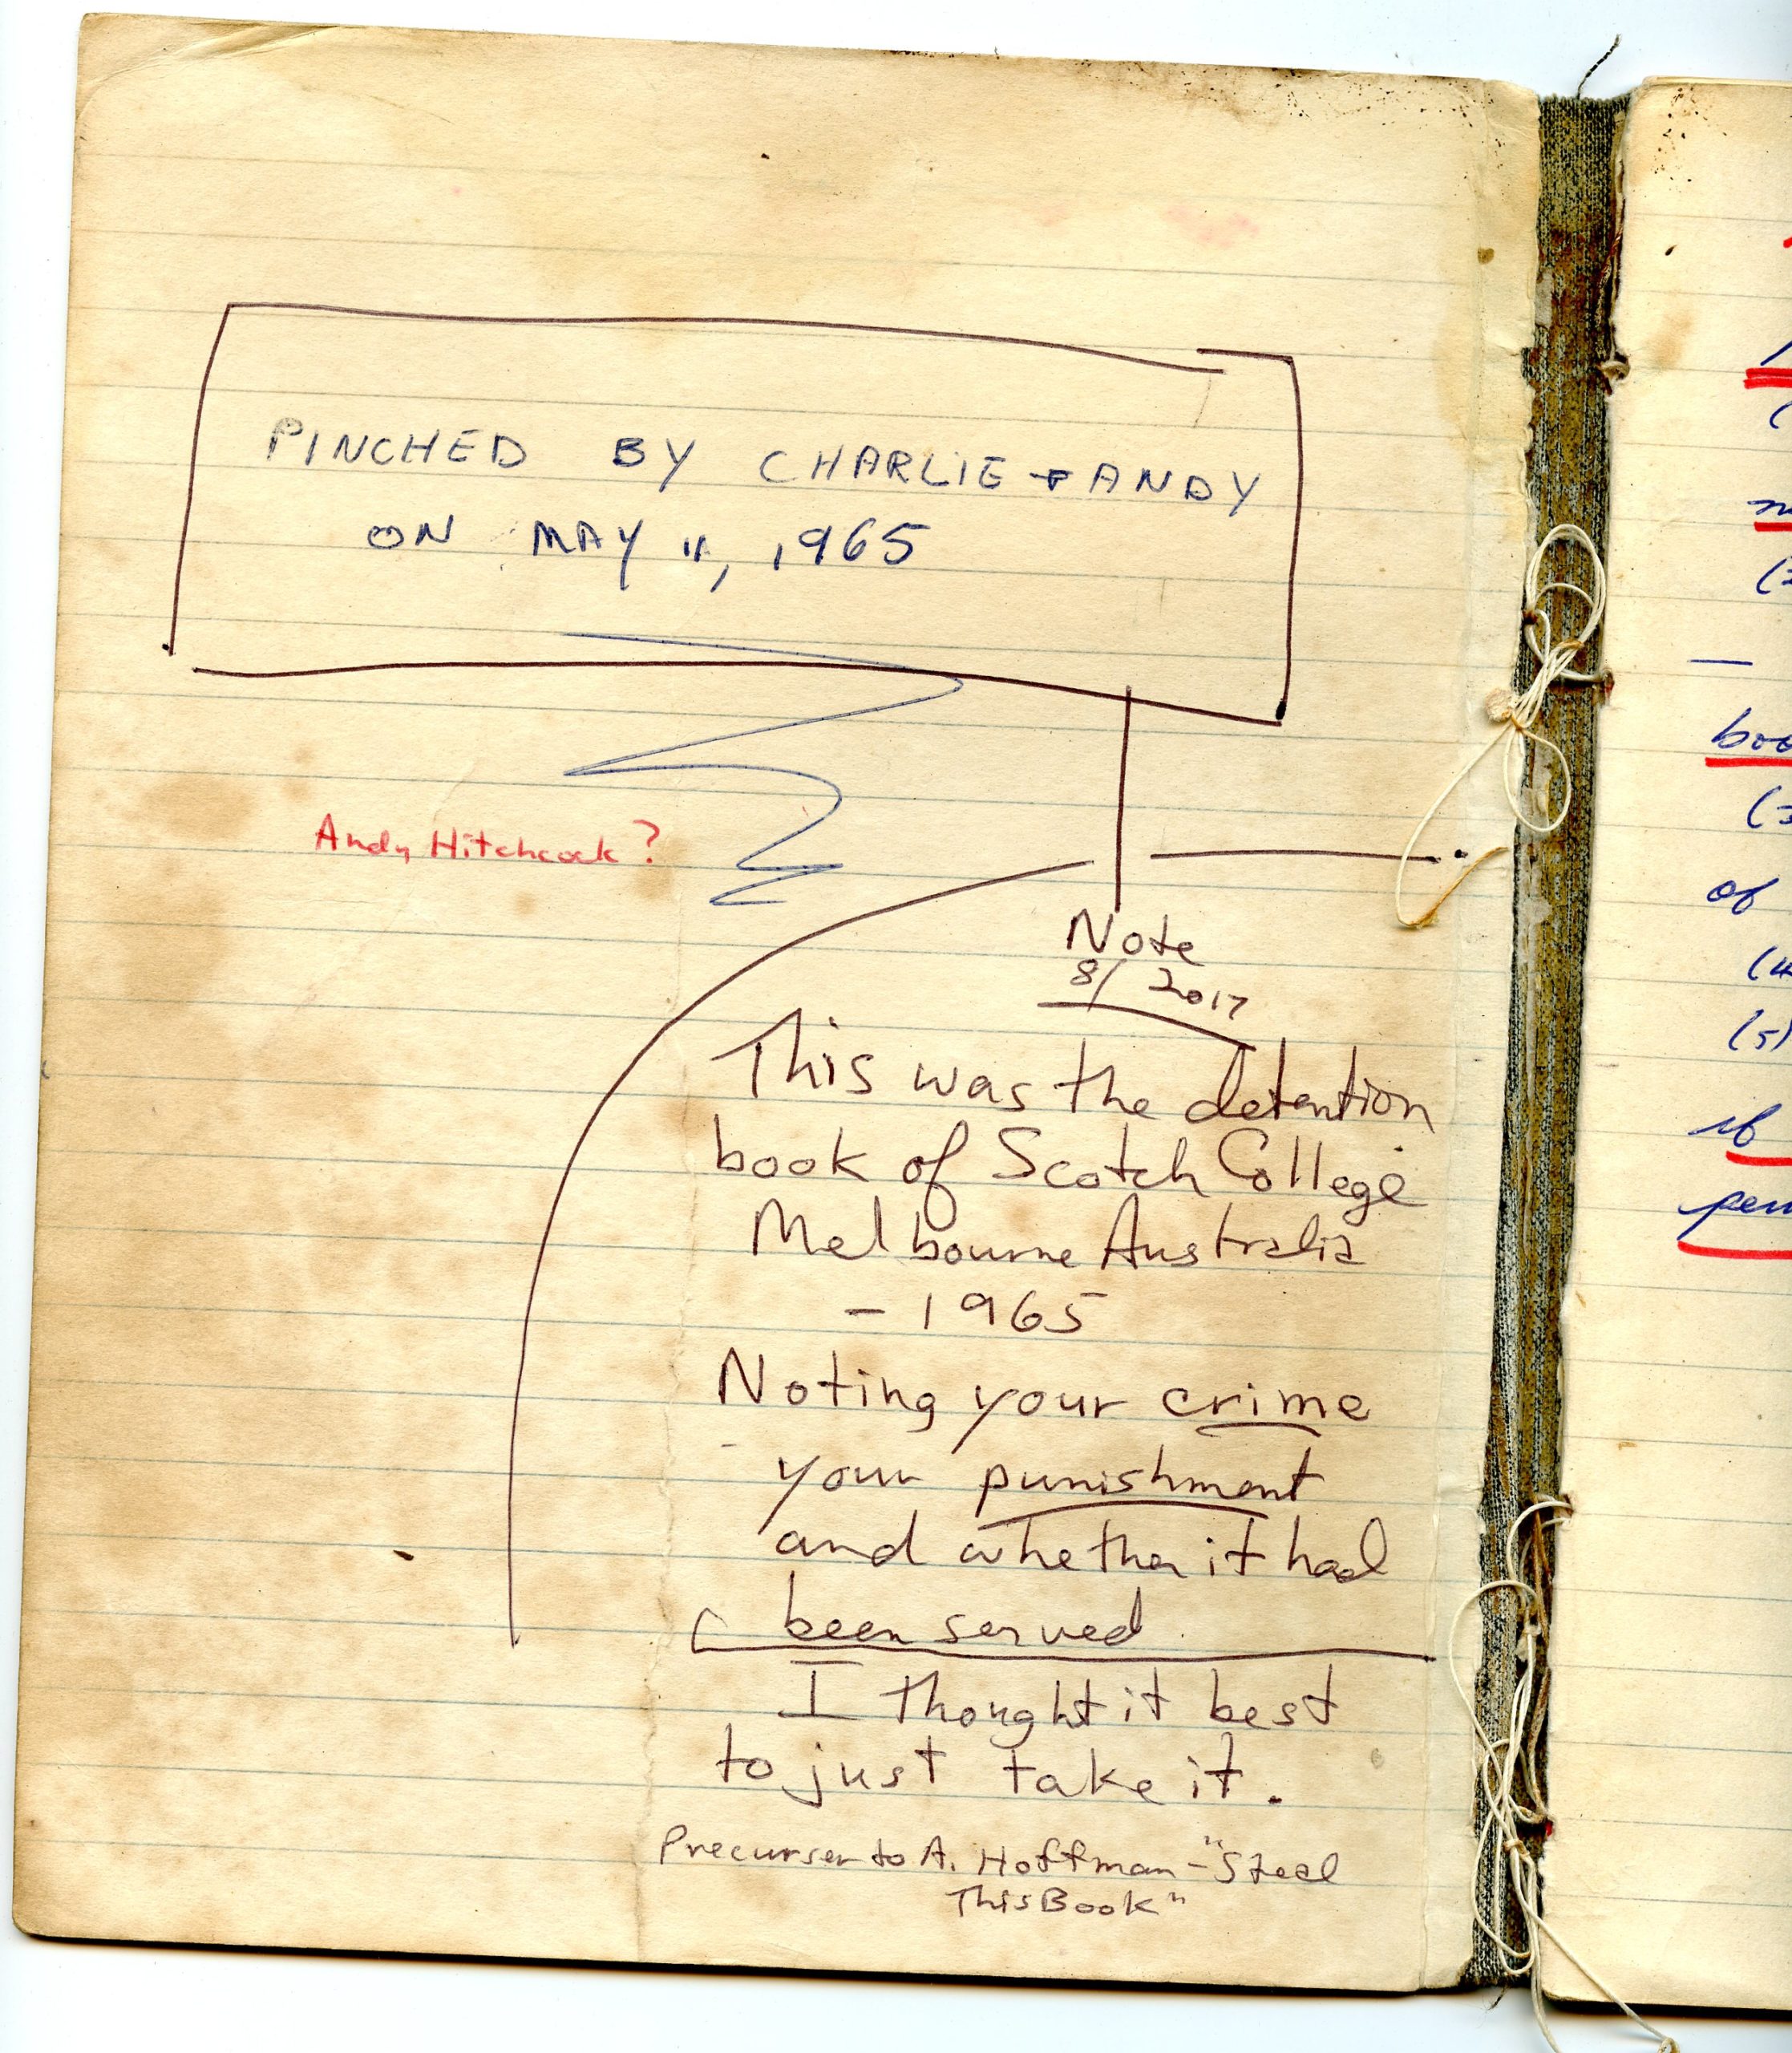 PINCHED BY CHARLIE + ANDY
ON MAY 11, 1965
Andy Hitchcock?
Note
8/ 2017
This was the detention
book of Scotch College
Melbourne Australia
- 1965
Noting your crime
your punishment
and whether it had
been served
I thought it best
to just take it.
Precurser to A. Hoffman - "Steal
This Book"
boo
(3
of
(4
(5)
if
pen